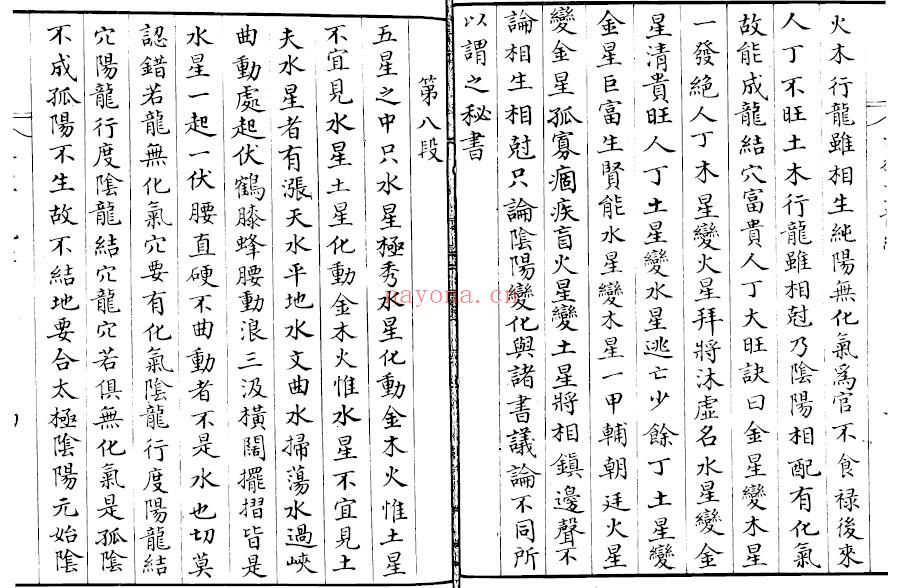 火木行龍雖相生純陽無化氣爲官不食禄後來
人丁不旺土木行龍雖相尅乃陰陽相配有化氣
故能成龍結穴富貴人丁大旺訣曰金星變木星
一發絕人丁木星變火星拜將沐虛名水星變金
星清貴旺人丁土星變水星逃亡少餘丁土星變
金星巨富生賢能水星變木星一甲輔朝廷火星
變金星孤寡痼疾盲火星變土星將相鎮邊聲不
論相生相尅只論陰陽變化與諸書議論不同所
以謂之秘書
第八段
五星之中只水星極秀水星化動金木火惟土星
不宜見水星土星化動金木火惟水星不宜見土
夫水星者有漲天水平地水文曲水掃蕩水過峽
曲動處起伏鶴膝蜂腰動浪三汲橫闊擺摺皆是
水星一起一伏腰直硬不曲動者不是水也切莫
認錯若龍無化氣穴要有化氣陰龍行度陽龍結
穴陽龍行度陰龍結穴龍穴若俱無化氣是孤陰
不成孤陽不生故不結地要合太極陰陽元始陰
nayona.cn